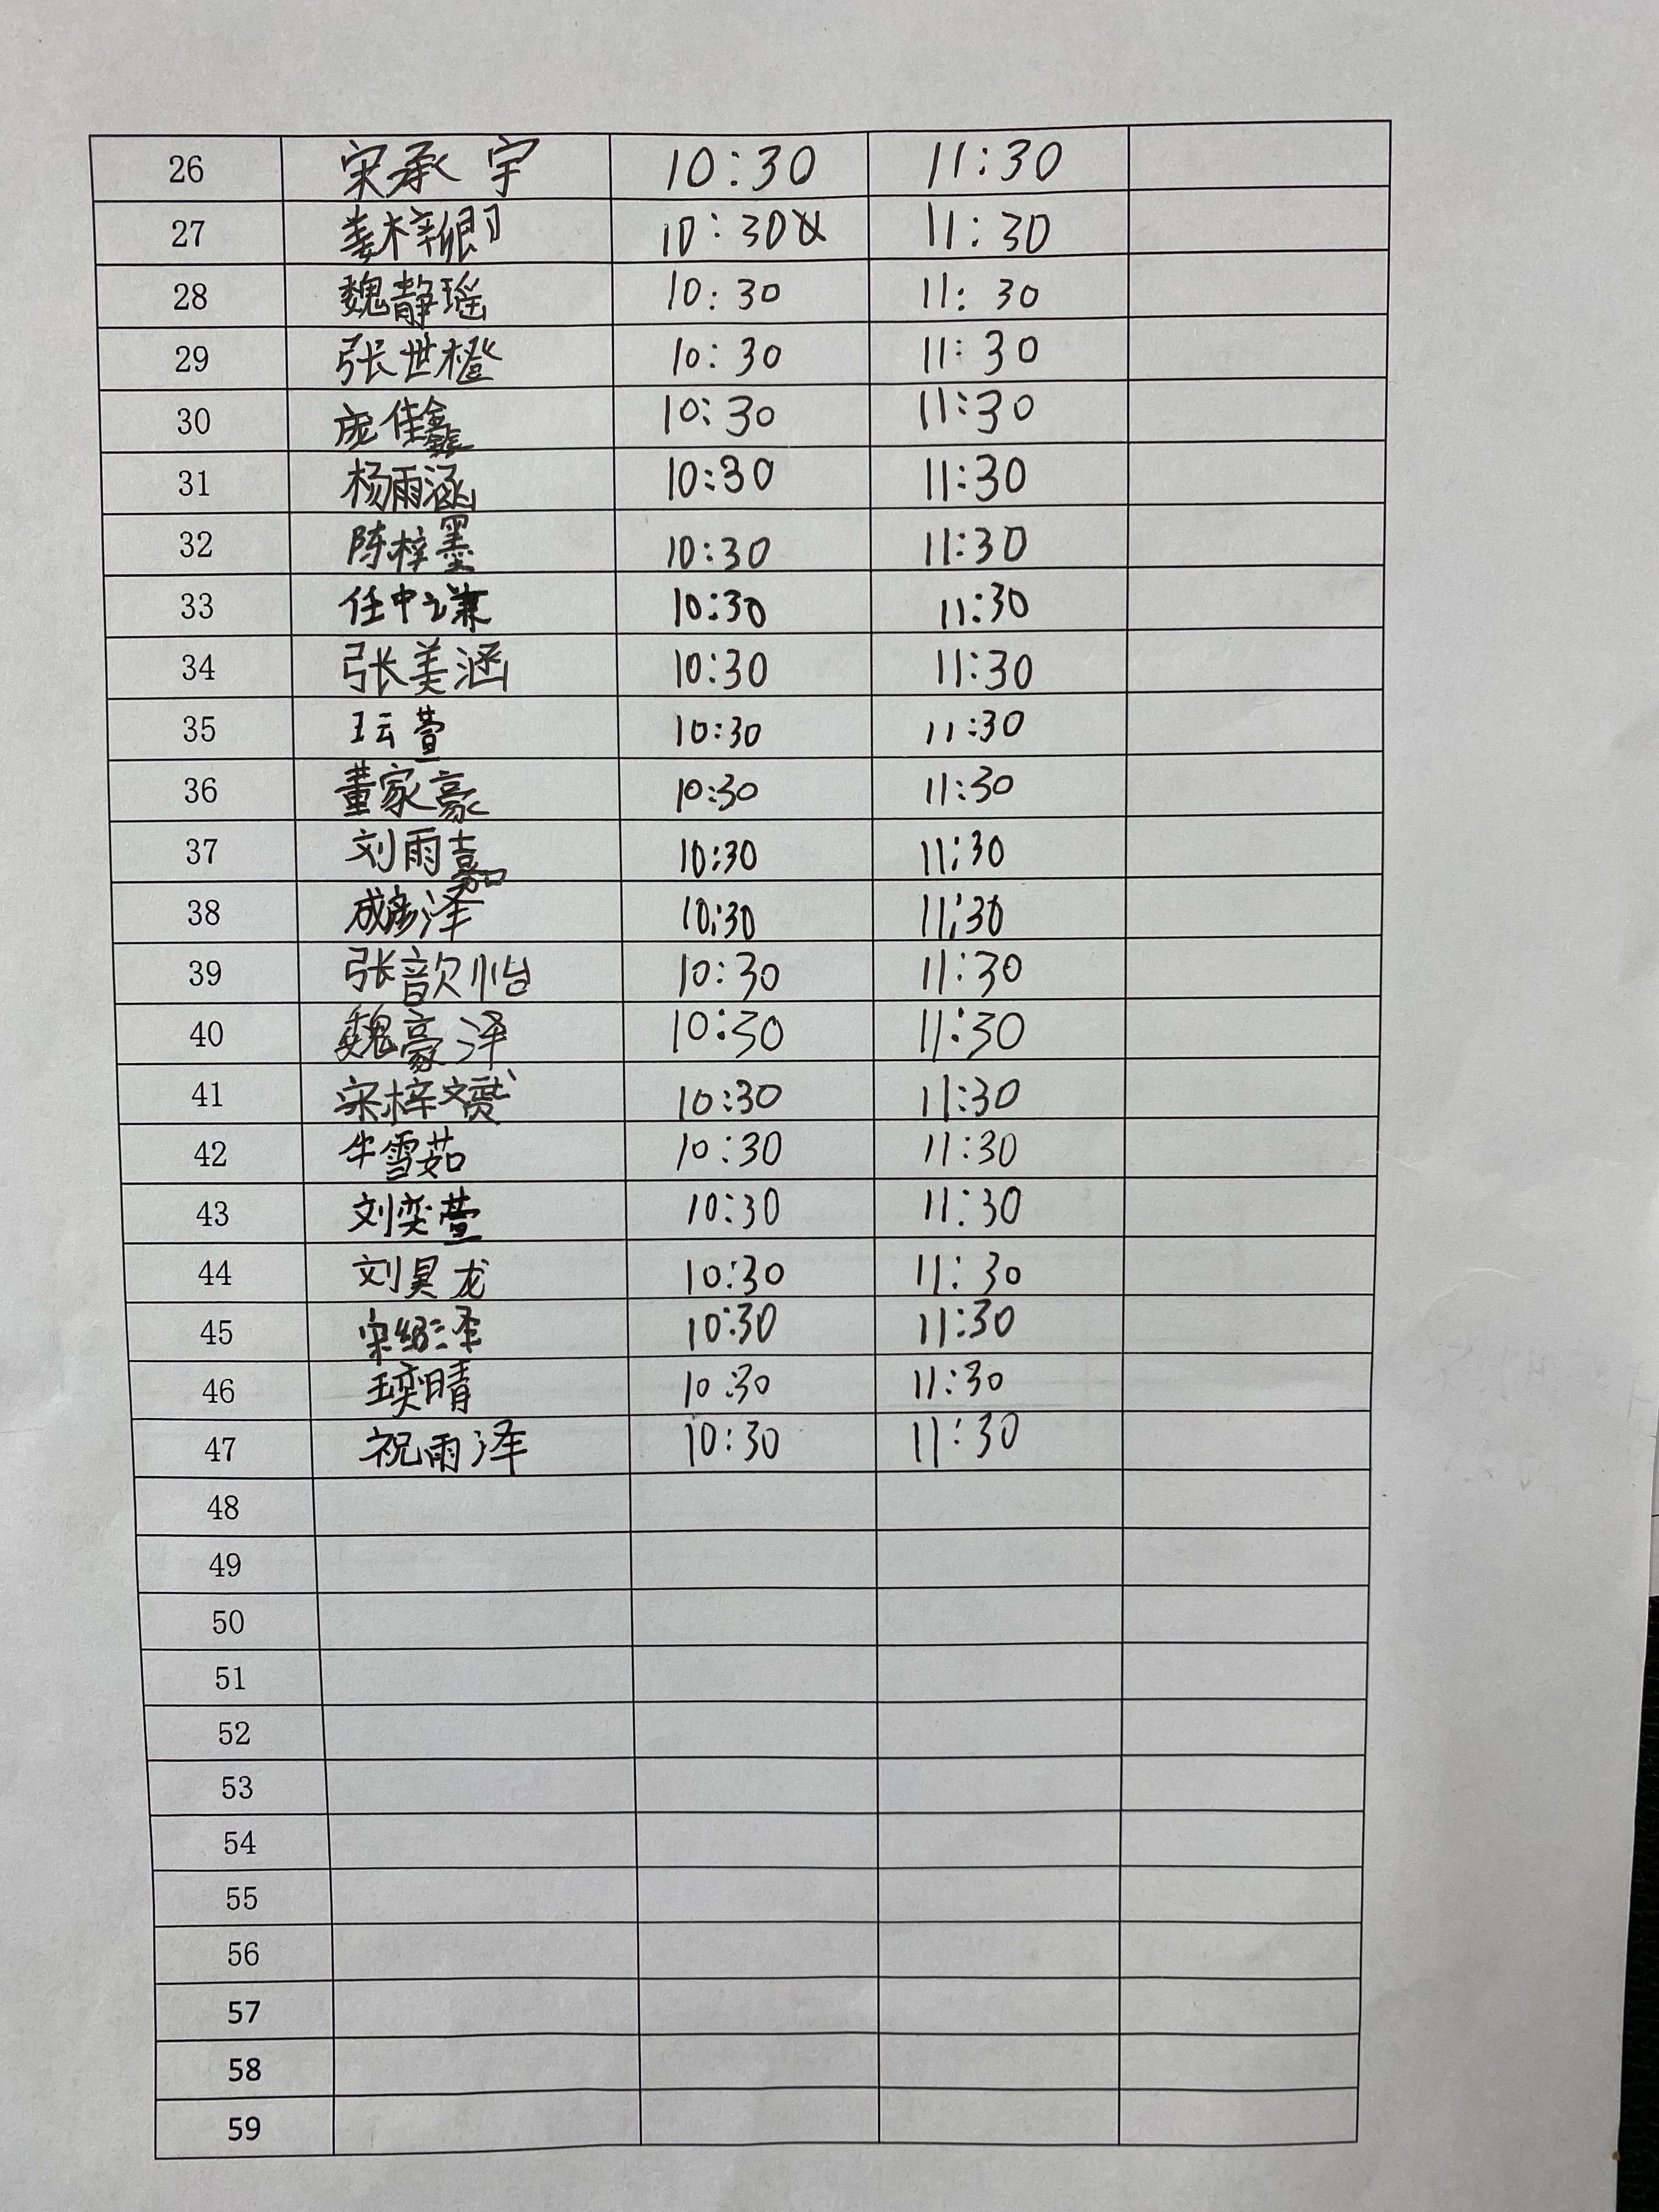 26 宋承宇 10:30 11:30
27 姜梓卿 10:30 11:30
28 魏静瑶 10:30 11:30
29 张世橙 10:30 11:30
30 庞佳鑫 10:30 11:30
31 杨雨涵 10:30 11:30
32 陈梓墨 10:30 11:30
33 任中谦 10:30 11:30
34 张美涵 10:30 11:30
35 王云萱 10:30 11:30
36 董家豪 10:30 11:30
37 刘雨嘉 10:30 11:30
38 成彦泽 10:30 11:30
39 张歆怡 10:30 11:30
40 魏豪泽 10:30 11:30
41 宋梓赟 10:30 11:30
42 牛雪茹 10:30 11:30
43 刘奕萱 10:30 11:30
44 刘昊龙 10:30 11:30
45 宋 10:30 11:30
46 王奕晴 10:30 11:30
47 祝雨泽 10:30 11:30
48
49
50
51
52
53
54
55
56
57
58
59